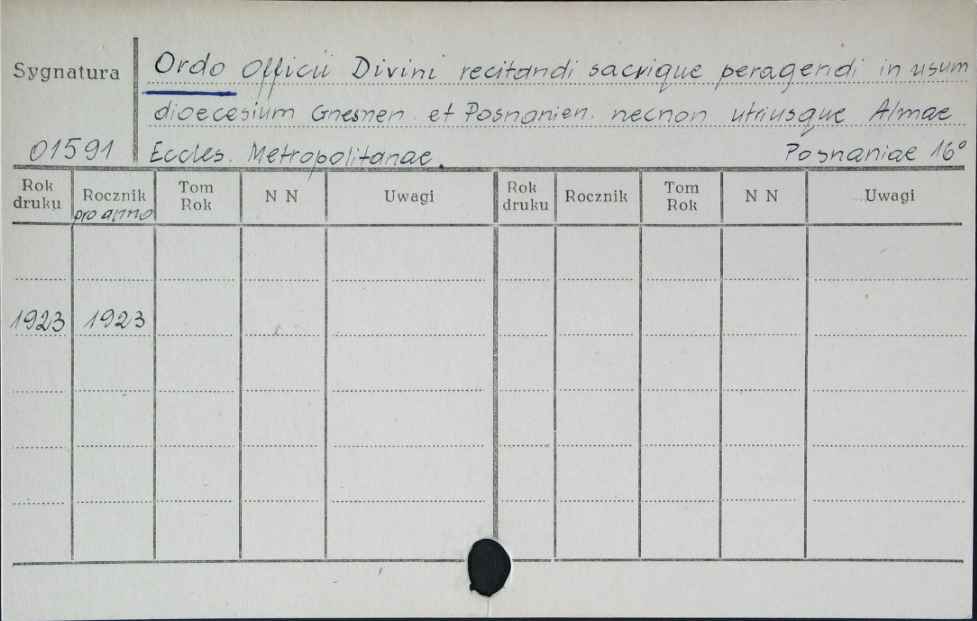 Sygnatura Ordo Officii Divini recitandi sacrique peragendi in usum
dioecesium Gnesnen. et Posnanien. necnon utriusque Almae
01591 Eccles. Metropolitanae. Posnaniae 16°
Rok druku Rocznik pro anno Tom Rok N N Uwagi Rok druku Rocznik Tom Rok N N Uwagi
1923 1923